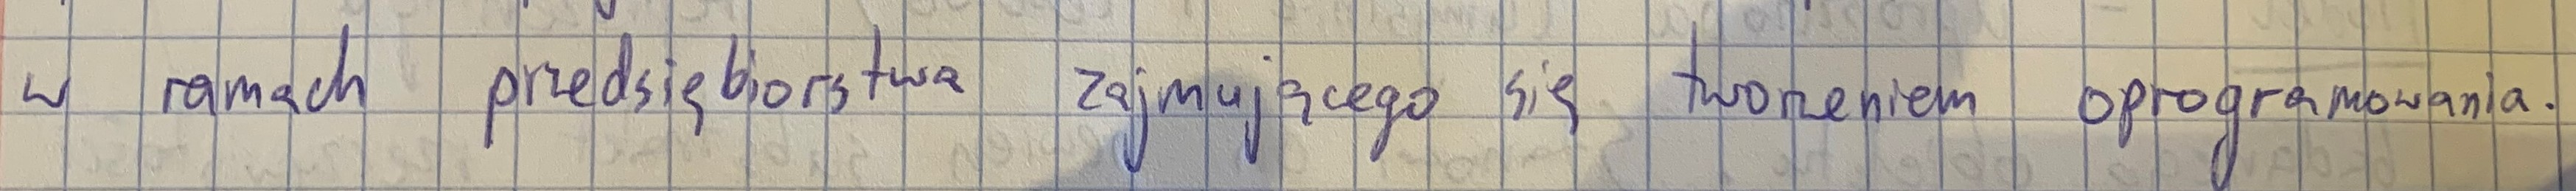 w ramach przedsiębiorstwa zajmującego się tworzeniem oprogramowania.